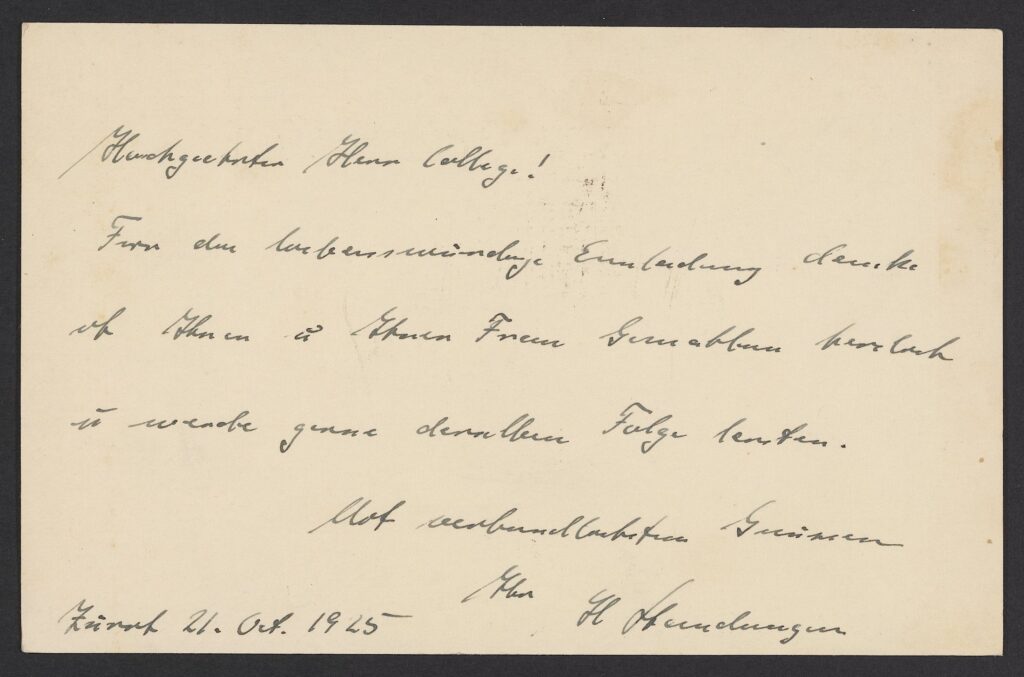 Hochgeehrter Herr College!
Für die liebenswürdige Einladung danke
ich Ihnen u Ihrer Frau Gemahlin herzlich
u werde gerne derselben Folge leisten.
Mit verbindlichsten Grüssen
Ihr
H
Zürich 21. Oct. 1925